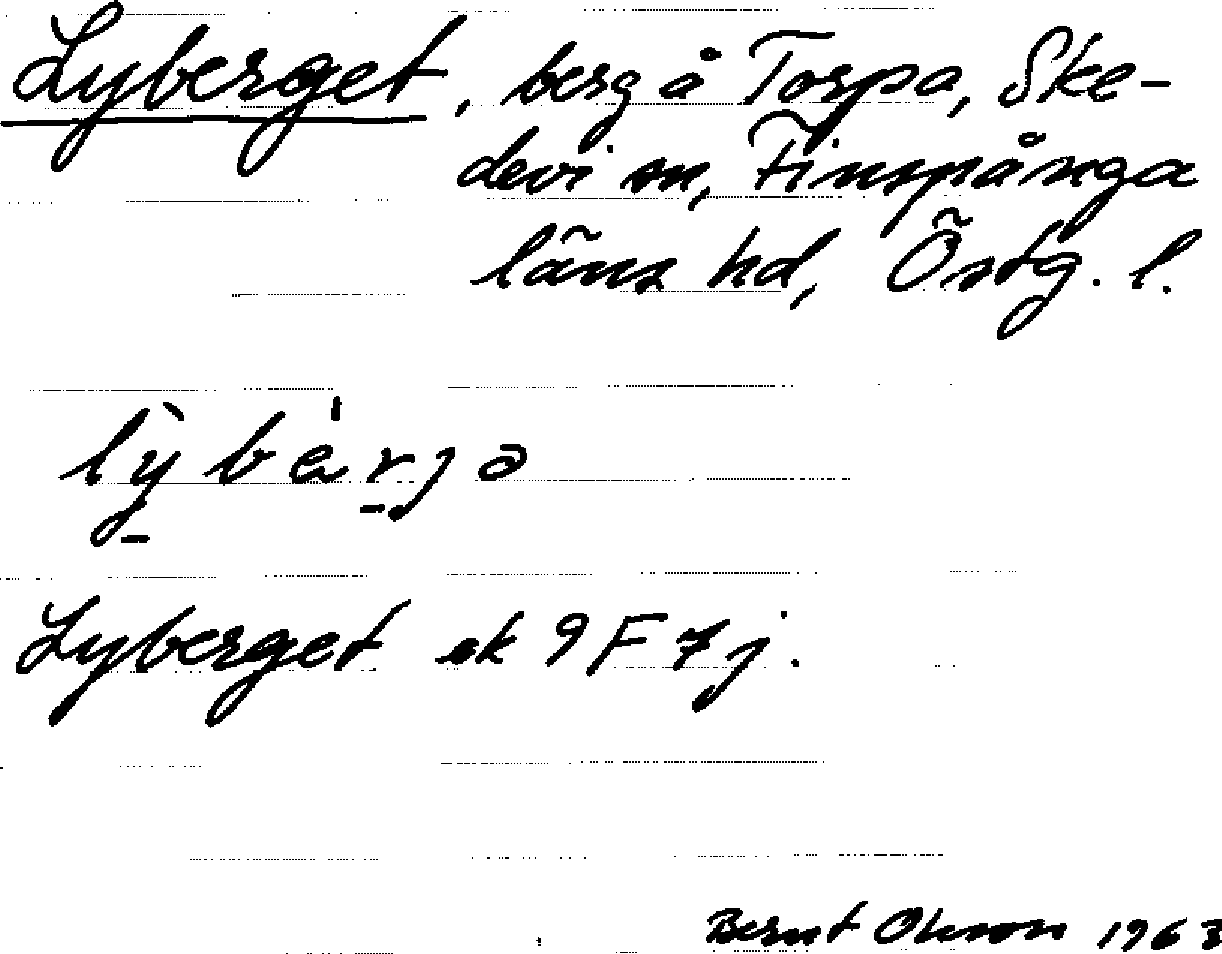 Lyberget, berg å Torpa, Ske-
devi sn, Finspånga
läns hd, Östg. l.
lỳbè́rjə
Lyberget ek 9F7j.
Bernt Olsson 1963